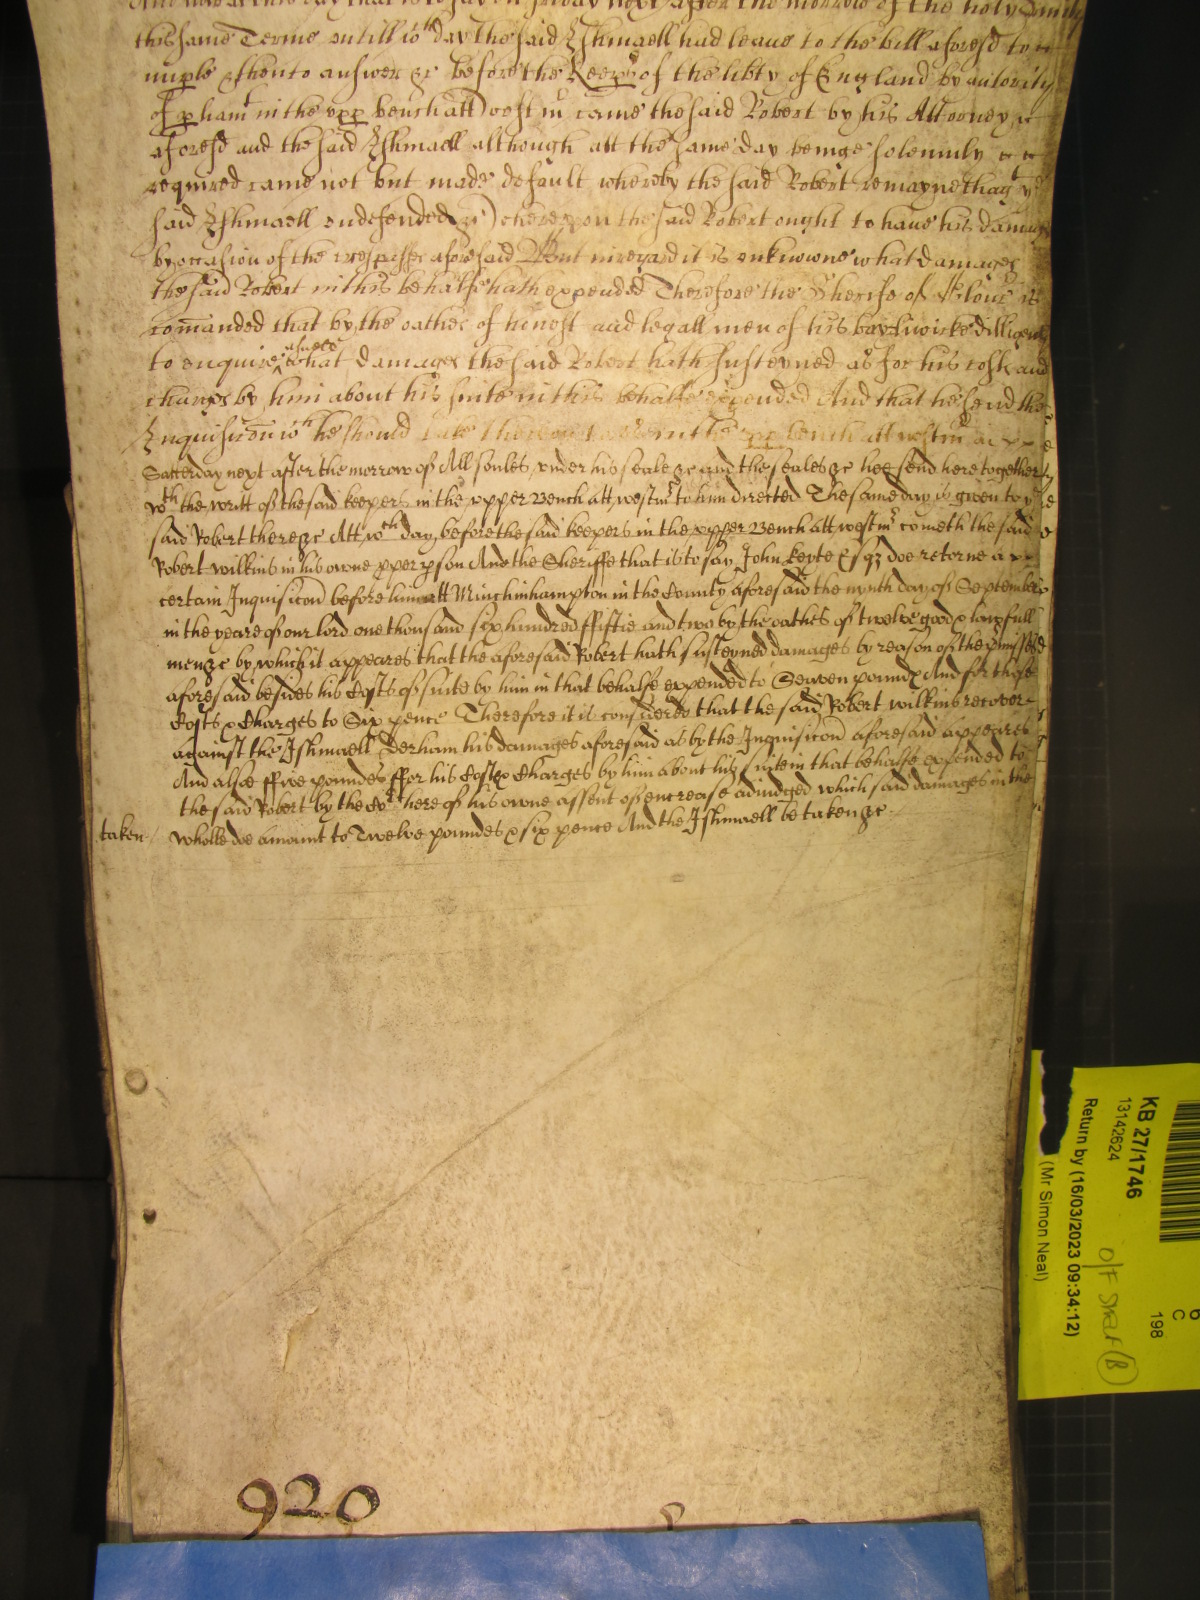 And now at this day that is to say on friday next after the morrow of the holy Trinity
this same Terme untill wch day the said Ishmaell had leave to the bill aforesd to
imparle & then to answer &c before the Keeprs of the libty of England by autority
of parliamt in the upp bench att Westmr came the said Robert by his Attorney
aforesd and the said Ishmaell although att the same day beinge solemnly
required came not but made default whereby the said Robert remayneth agt ye
said Ishmaell undefended &c Whereupon the said Robert ought to have his damages
by occasion of the trespasses aforesaid But in regard it is unknowne what damages
the said Robert in this behalfe hath expended Therefore the Sherife of Glouc is
comanded that by the oathes of honest and legall men of his bayliwicke dilligently
to enquire aswell what damages the said Robert hath susteyned as for his costs and
charges by him about his suite in this behalfe expended And that he send the
Inquisicon wch he should take thereupon in the upp bench att westmr
Satterday next after the morrow of All soules under his seale &c and the seales &c hee send here together
wth the writt of the said keepers in the upper Bench att westmr to him directed The same day is given to ye
said Robert there &c Att wch day before the said keepers in the upper Bench att westmr cometh the said
Robert Wilkins in his owne pper pson And the Sheriffe that is to say John Keyte Esqz doe retorne a
certain Inquisicon before him att Minchinhampton in the County aforesaid the nynth day of September
in the yeare of our lord one thousand six hundred ffiftie and two by the oathes of twelve good & lawfull
men &c by which it appeares that the aforesaid Robert hath susteyned damages by reason of the pmisses
aforesaid besides his Costs of suite by him in that behalfe expended to Seaven pounds And for those
Costs & Charges to Six pence Therefore it is considered that the said Robert Wilkins recover
against the Ishmaell Derham his damages aforesaid as by the Inquisicon aforesaid appeares
And alsoe ffive poundes ffor his Costs & Charges by him about his suite in that behalfe expended to
the said Robert by the Cort here of his owne assent of encrease adiudged which said damages in the
taken wholle doe amount to Twelve poundes & six pence And the Ishmaell be taken &c
920
KB 27/1746
13142624
Return by (16/03/2023 09:34:12)
(Mr Simon Neal)
198
6
C
O/F Strat (B)